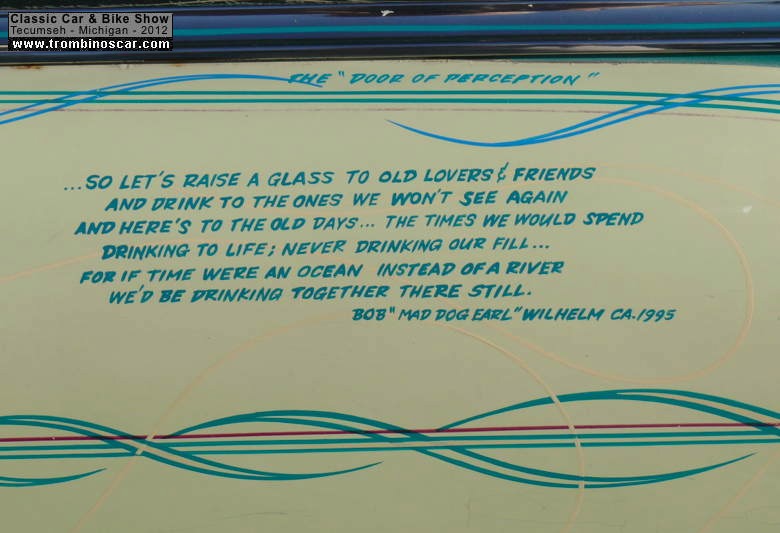 Classic Car & Bike Show
Tecumseh - Michigan - 2012
www.trombinoscar.com
THE "DOOR OF PERCEPTION"
...SO LET'S RAISE A GLASS TO OLD LOVERS & FRIENDS
AND DRINK TO THE ONES WE WON'T SEE AGAIN
AND HERE'S TO THE OLD DAYS... THE TIMES WE WOULD SPEND
DRINKING TO LIFE; NEVER DRINKING OUR FILL...
FOR IF TIME WERE AN OCEAN INSTEAD OF A RIVER
WE'D BE DRINKING TOGETHER THERE STILL.
BOB "MAD DOG EARL" WILHELM CA.1995